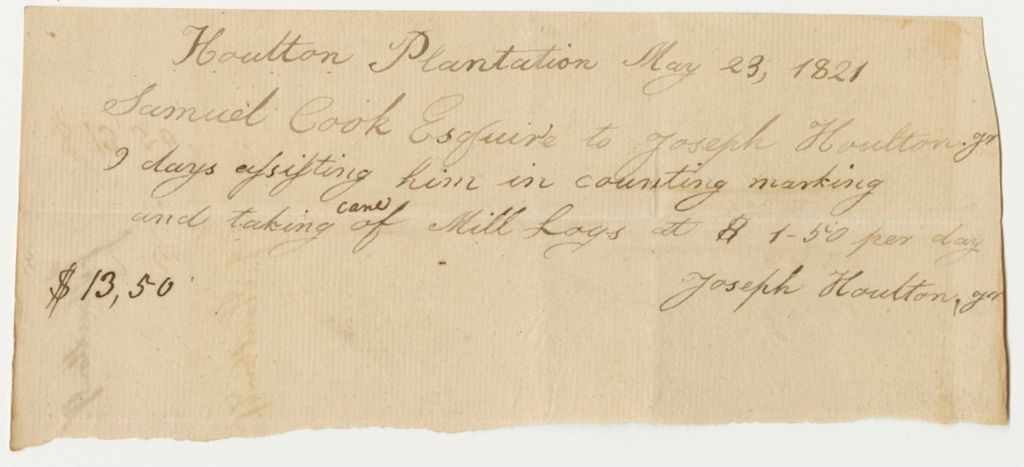 Houlton Plantation May 23, 1821
Samuel Cook Esquire to Joseph Houlton. Jr
9 days assisting him in counting marking
and taking care of Mill Logs at $ 1-50 per day
$ 13,50
Joseph Houlton, Jr